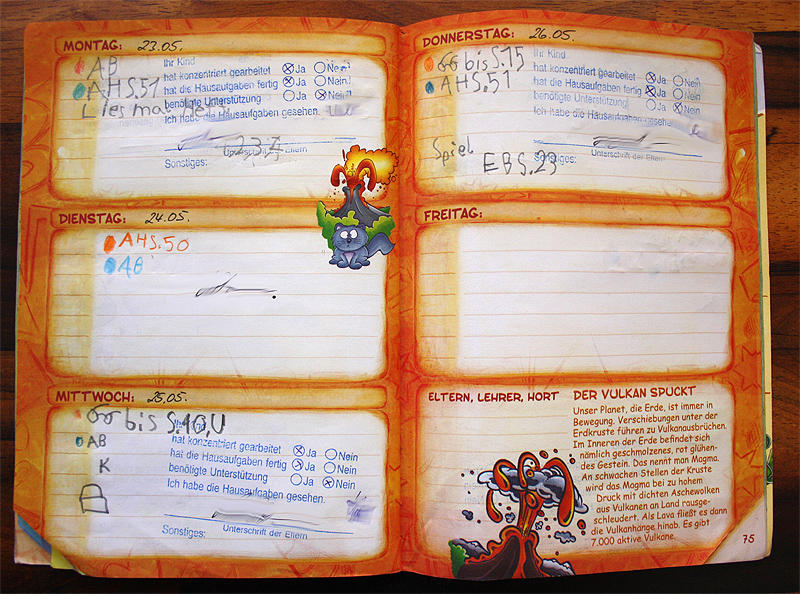 MONTAG: 23.05.
AB
AHS.51
Lies mal
Ihr Kind
hat konzentriert gearbeitet Ja Nein
hat die Hausaufgaben fertig Ja Nein
benötigte Unterstützung Ja Nein
Ich habe die Hausaufgaben gesehen.
Unterschrift der Eltern
Sonstiges:
DIENSTAG: 24.05.
AHS.50
AB
MITTWOCH: 25.05.
bis S.10,U
AB
K
Ihr Kind
hat konzentriert gearbeitet Ja Nein
hat die Hausaufgaben fertig Ja Nein
benötigte Unterstützung Ja Nein
Ich habe die Hausaufgaben gesehen.
Unterschrift der Eltern
Sonstiges:
DONNERSTAG: 26.05.
bis S.15
AHS.51
Ihr Kind
hat konzentriert gearbeitet Ja Nein
hat die Hausaufgaben fertig Ja Nein
benötigte Unterstützung Ja Nein
Ich habe die Hausaufgaben gesehen.
Unterschrift der Eltern
Spiel
Sonstiges:
EBS.23
FREITAG:
ELTERN, LEHRER, HORT
DER VULKAN SPUCKT
Unser Planet, die Erde, ist immer in
Bewegung. Verschiebungen unter der
Erdkruste führen zu Vulkanausbrüchen.
Im Inneren der Erde befindet sich
nämlich geschmolzenes, rot glühen-
des Gestein. Das nennt man Magma.
An schwachen Stellen der Kruste
wird das Magma bei zu hohem
Druck mit dichten Aschewolken
aus Vulkanen an Land rausge-
schleudert. Als Lava fließt es dann
die Vulkanhänge hinab. Es gibt
7.000 aktive Vulkane.
75